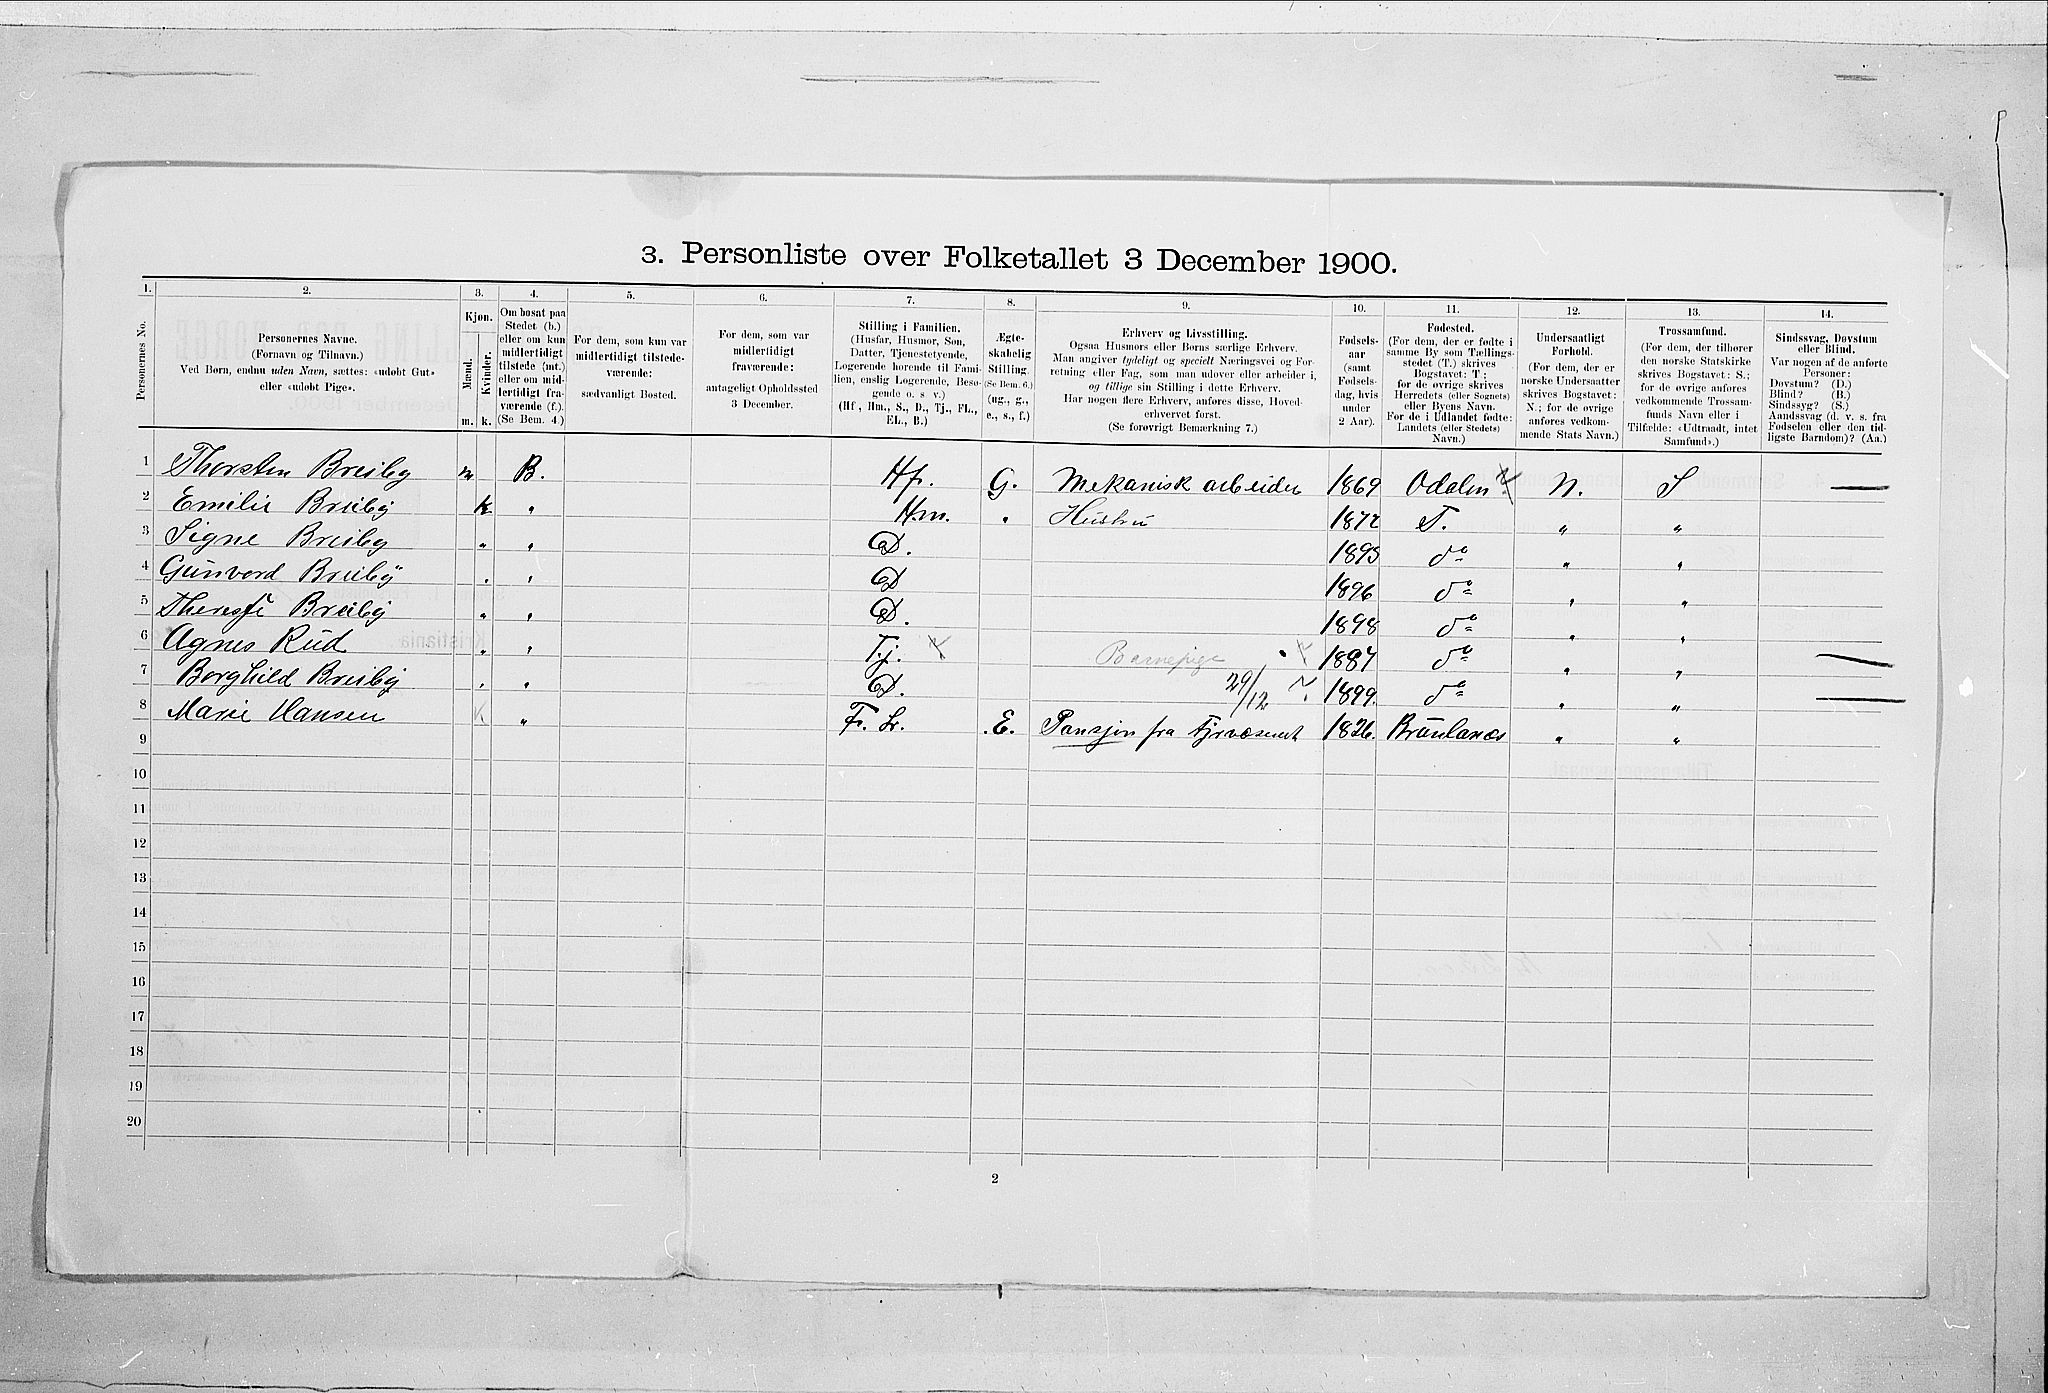 3. Personliste over Folketallet 3 December 1900.
1. 2. 3. 4. 5. 6. 7. 8. 9. 10. 11. 12. 13. 14.
Personernes No.
Personernes Navne.
(Fornavn og Tilnavn.)
Ved Børn, endnu uden Navn, sættes: «udøbt Gut»
eller «udøbt Pige».
Kjøn.
Mænd.
Kvinder.
m. k.
Om bosat paa
Stedet (b.)
eller om kun
midlertidigt
tilstede (mt.)
eller om mid-
lertidigt fra-
værende (f.).
(Se Bem. 4.)
For dem, som kun var
midlertidigt tilstede-
værende:
sædvanligt Bosted.
For dem, som var
midlertidigt
fraværende:
antageligt Opholdssted
3 December.
Stilling i Familien.
(Husfar, Husmor, Søn,
Datter, Tjenestetyende,
Logerende hørende til Fami-
lien, enslig Logerende, Besø-
gende o. s v.)
(Hf, Hm., S., D., Tj., FL.,
EL., B.)
Ægte-
skabelig
Stilling.
(Se Bem. 6.)
(ug., g.,
e., s., f.)
Erhverv og Livsstilling.
Ogsaa Husmors eller Børns særlige Erhverv.
Man angiver tydeligt og specielt Næringsvei og For-
retning eller Fag, som man udøver eller arbeider i,
og tillige sin Stilling i dette Erhverv.
Har nogen flere Erhverv, anføres disse, Hoved-
erhvervet først.
(Se forøvrigt Bemærkning 7.)
Fødsels-
aar
(samt
Fødsels-
dag, hvis
under
2 Aar).
Fødested.
(For dem, der er fødte i
samme By som Tællings-
stedet (T.) skrives
Bogstavet: T.;
for de øvrige skrives
Herredets (eller Sognets)
eller Byens Navn.
For de i Udlandet fødte:
Landets (eller Stedets)
Navn.)
Undersaatligt
Forhold.
(For dem, der er
norske Undersaatter
skrives Bogstavet:
N.; for de øvrige
anføres vedkom-
mende Stats Navn.)
Trossamfund.
(For dem, der tilhører
den norske Statskirke
skrives Bogstavet: S.;
for de øvrige anføres
vedkommende Trossam-
funds Navn eller i
Tilfælde: «Udtraadt, intet
Samfund».)
Sindssvag, Døvstum
eller Blind.
Var nogen af de anførte
Personer:
Døvstum? (D.)
Blind? (B.)
Sindssyg? (S.)
Aandssvag (d. v. s. fra
Fødselen eller den tid-
ligste Barndom)? (Aa.)
1 Thorsten Breiby m B. Hf. G. Mekanisk arbeider 1869 Odalen N. S —
2 Emilie Breiby k " H.m. " Hustru 1872 T. " "
3 Signe Breiby " " D. 1895 do " "
4 Gunvord Breiby " " D 1896 do " "
5 Therese Breiby " " D. 1898 do " "
6 Agnes Rud " " T.j. Barnepige 1887 do " " —
7 Borghild Breiby " " D. 29/12 1899. do " " —
8 Marie Hansen k " F. L. E. Pansjon fra Fyrvæsenet 1826. Brunlanes " "
9
10
11
12
13
14
15
16
17
18
19
20
2